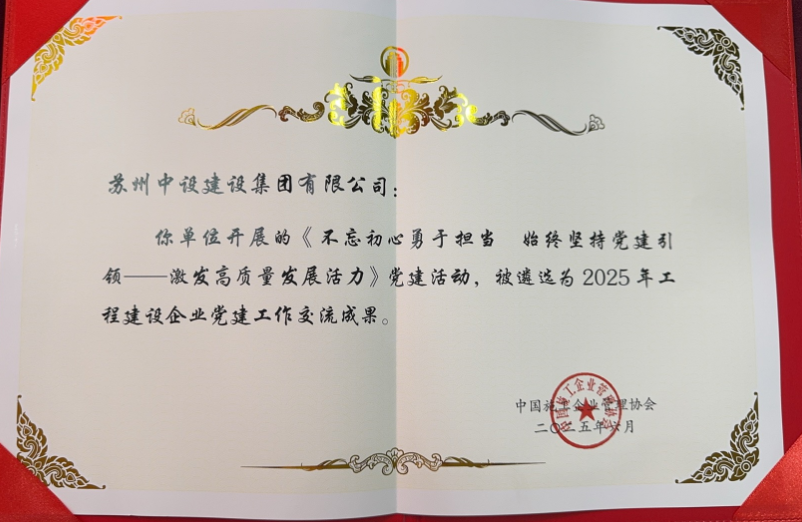 苏州中设建设集团有限公司：
你单位开展的《不忘初心勇于担当 始终坚持党建引
领——激发高质量发展活力》党建活动，被遴选为2025年工
程建设企业党建工作交流成果。
中国施工企业管理协会
二〇二五年六月